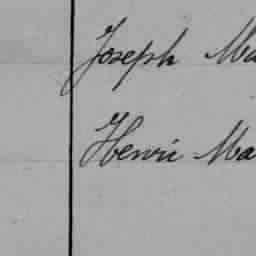 Joseph Ma
Henri Ma